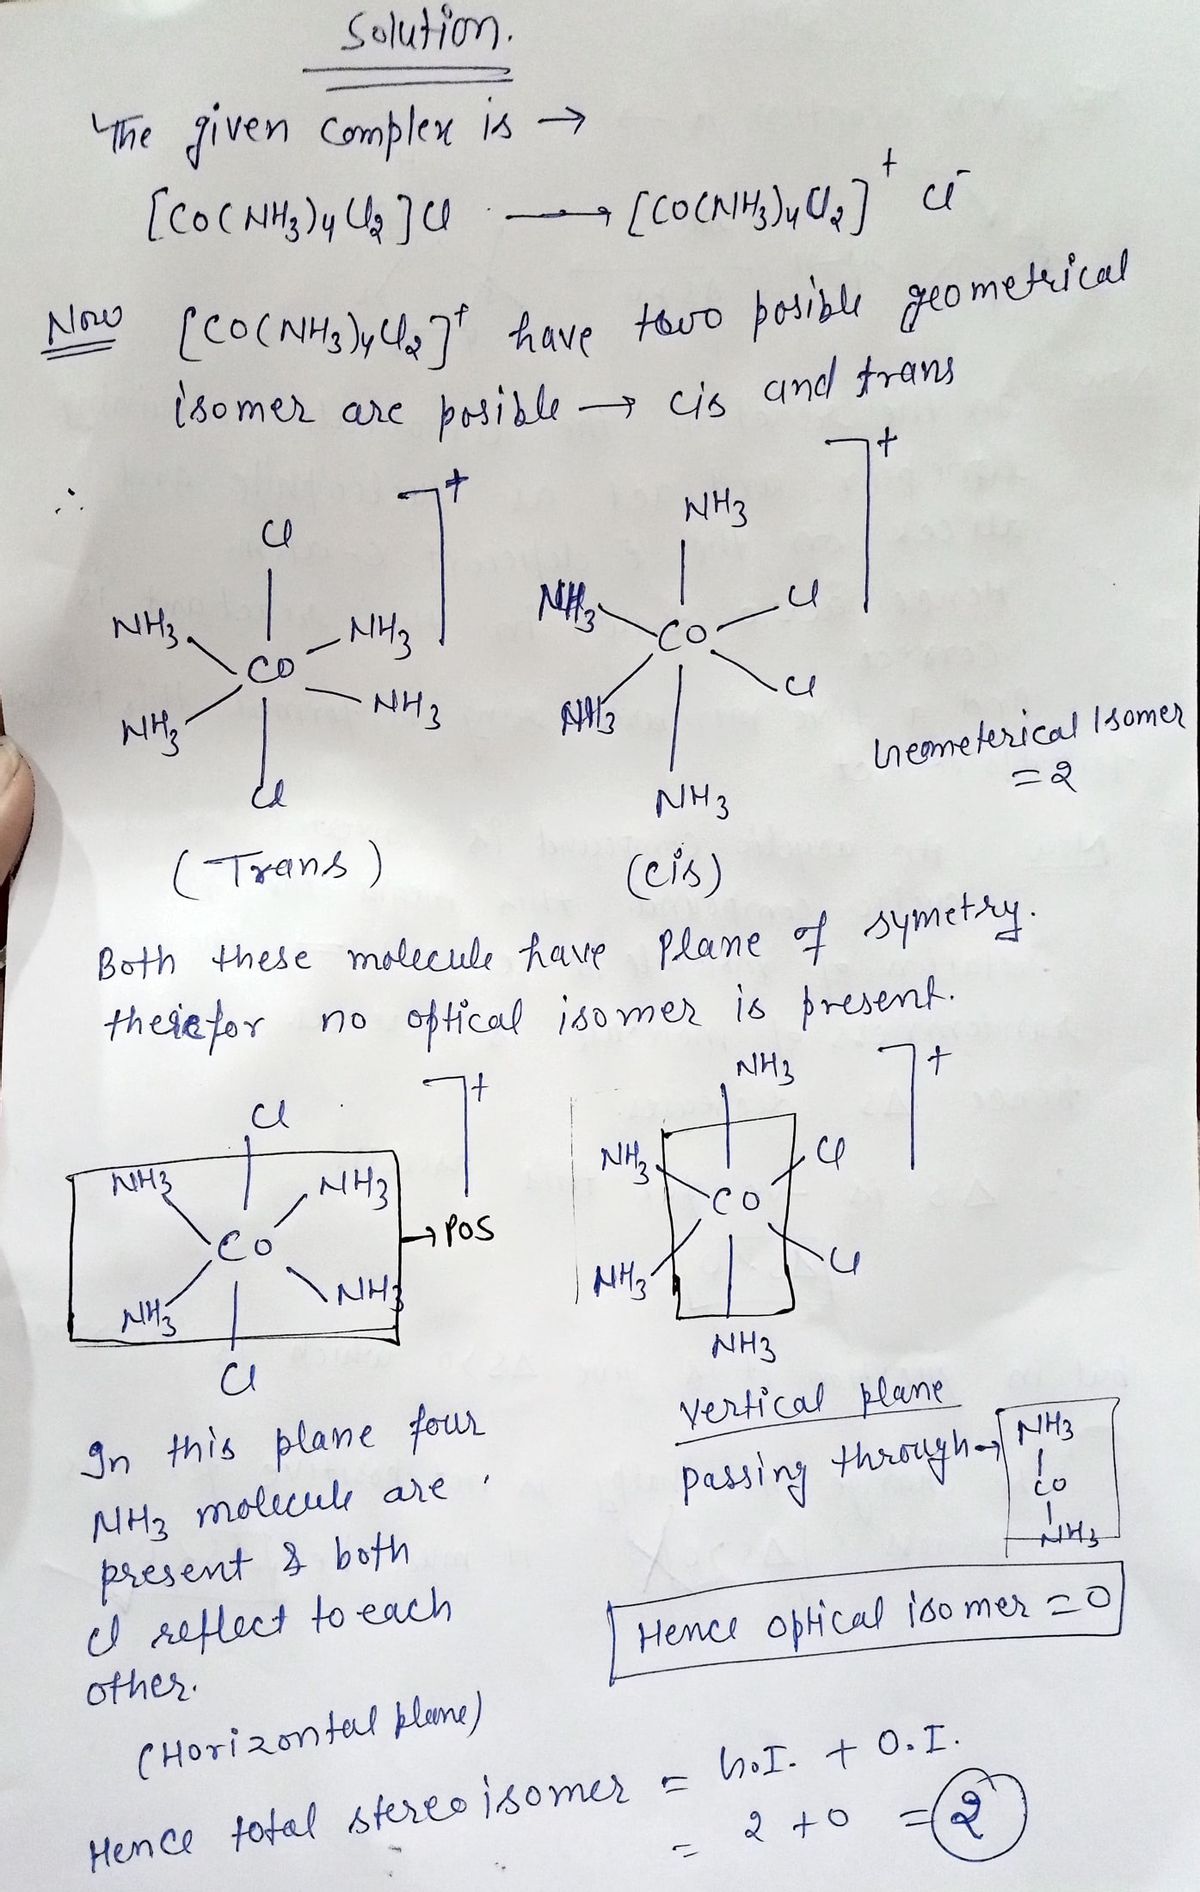 Solution.
The given complex is →
[CO(NH3)4Cl2]Cl → [CO(NH3)4Cl2]+ Cl-
Now [CO(NH3)4Cl2]+ have two posible geometrical
isomer are posible → cis and trans
∴
Cl
NH3 NH3
CO
NH3 NH3
Cl
(Trans)
+
NH3
NH3 Cl
CO
NH3 Cl
NH3
(cis)
+
Geometerical Isomer
= 2
Both these molecule have Plane of symetry.
therefor no optical isomer is present.
Cl
NH3 NH3
CO
NH3 NH3
Cl
+
→ POS
NH3
NH3 Cl
CO
NH3 Cl
NH3
+
In this plane four
NH3 molecule are
present & both
Cl reflect to each
other.
(Horizontal plane)
Vertical plane
passing through →
NH3
CO
NH3
Hence optical isomer = 0
Hence total stereoisomer = G.I. + O.I.
= 2 + 0 = 2